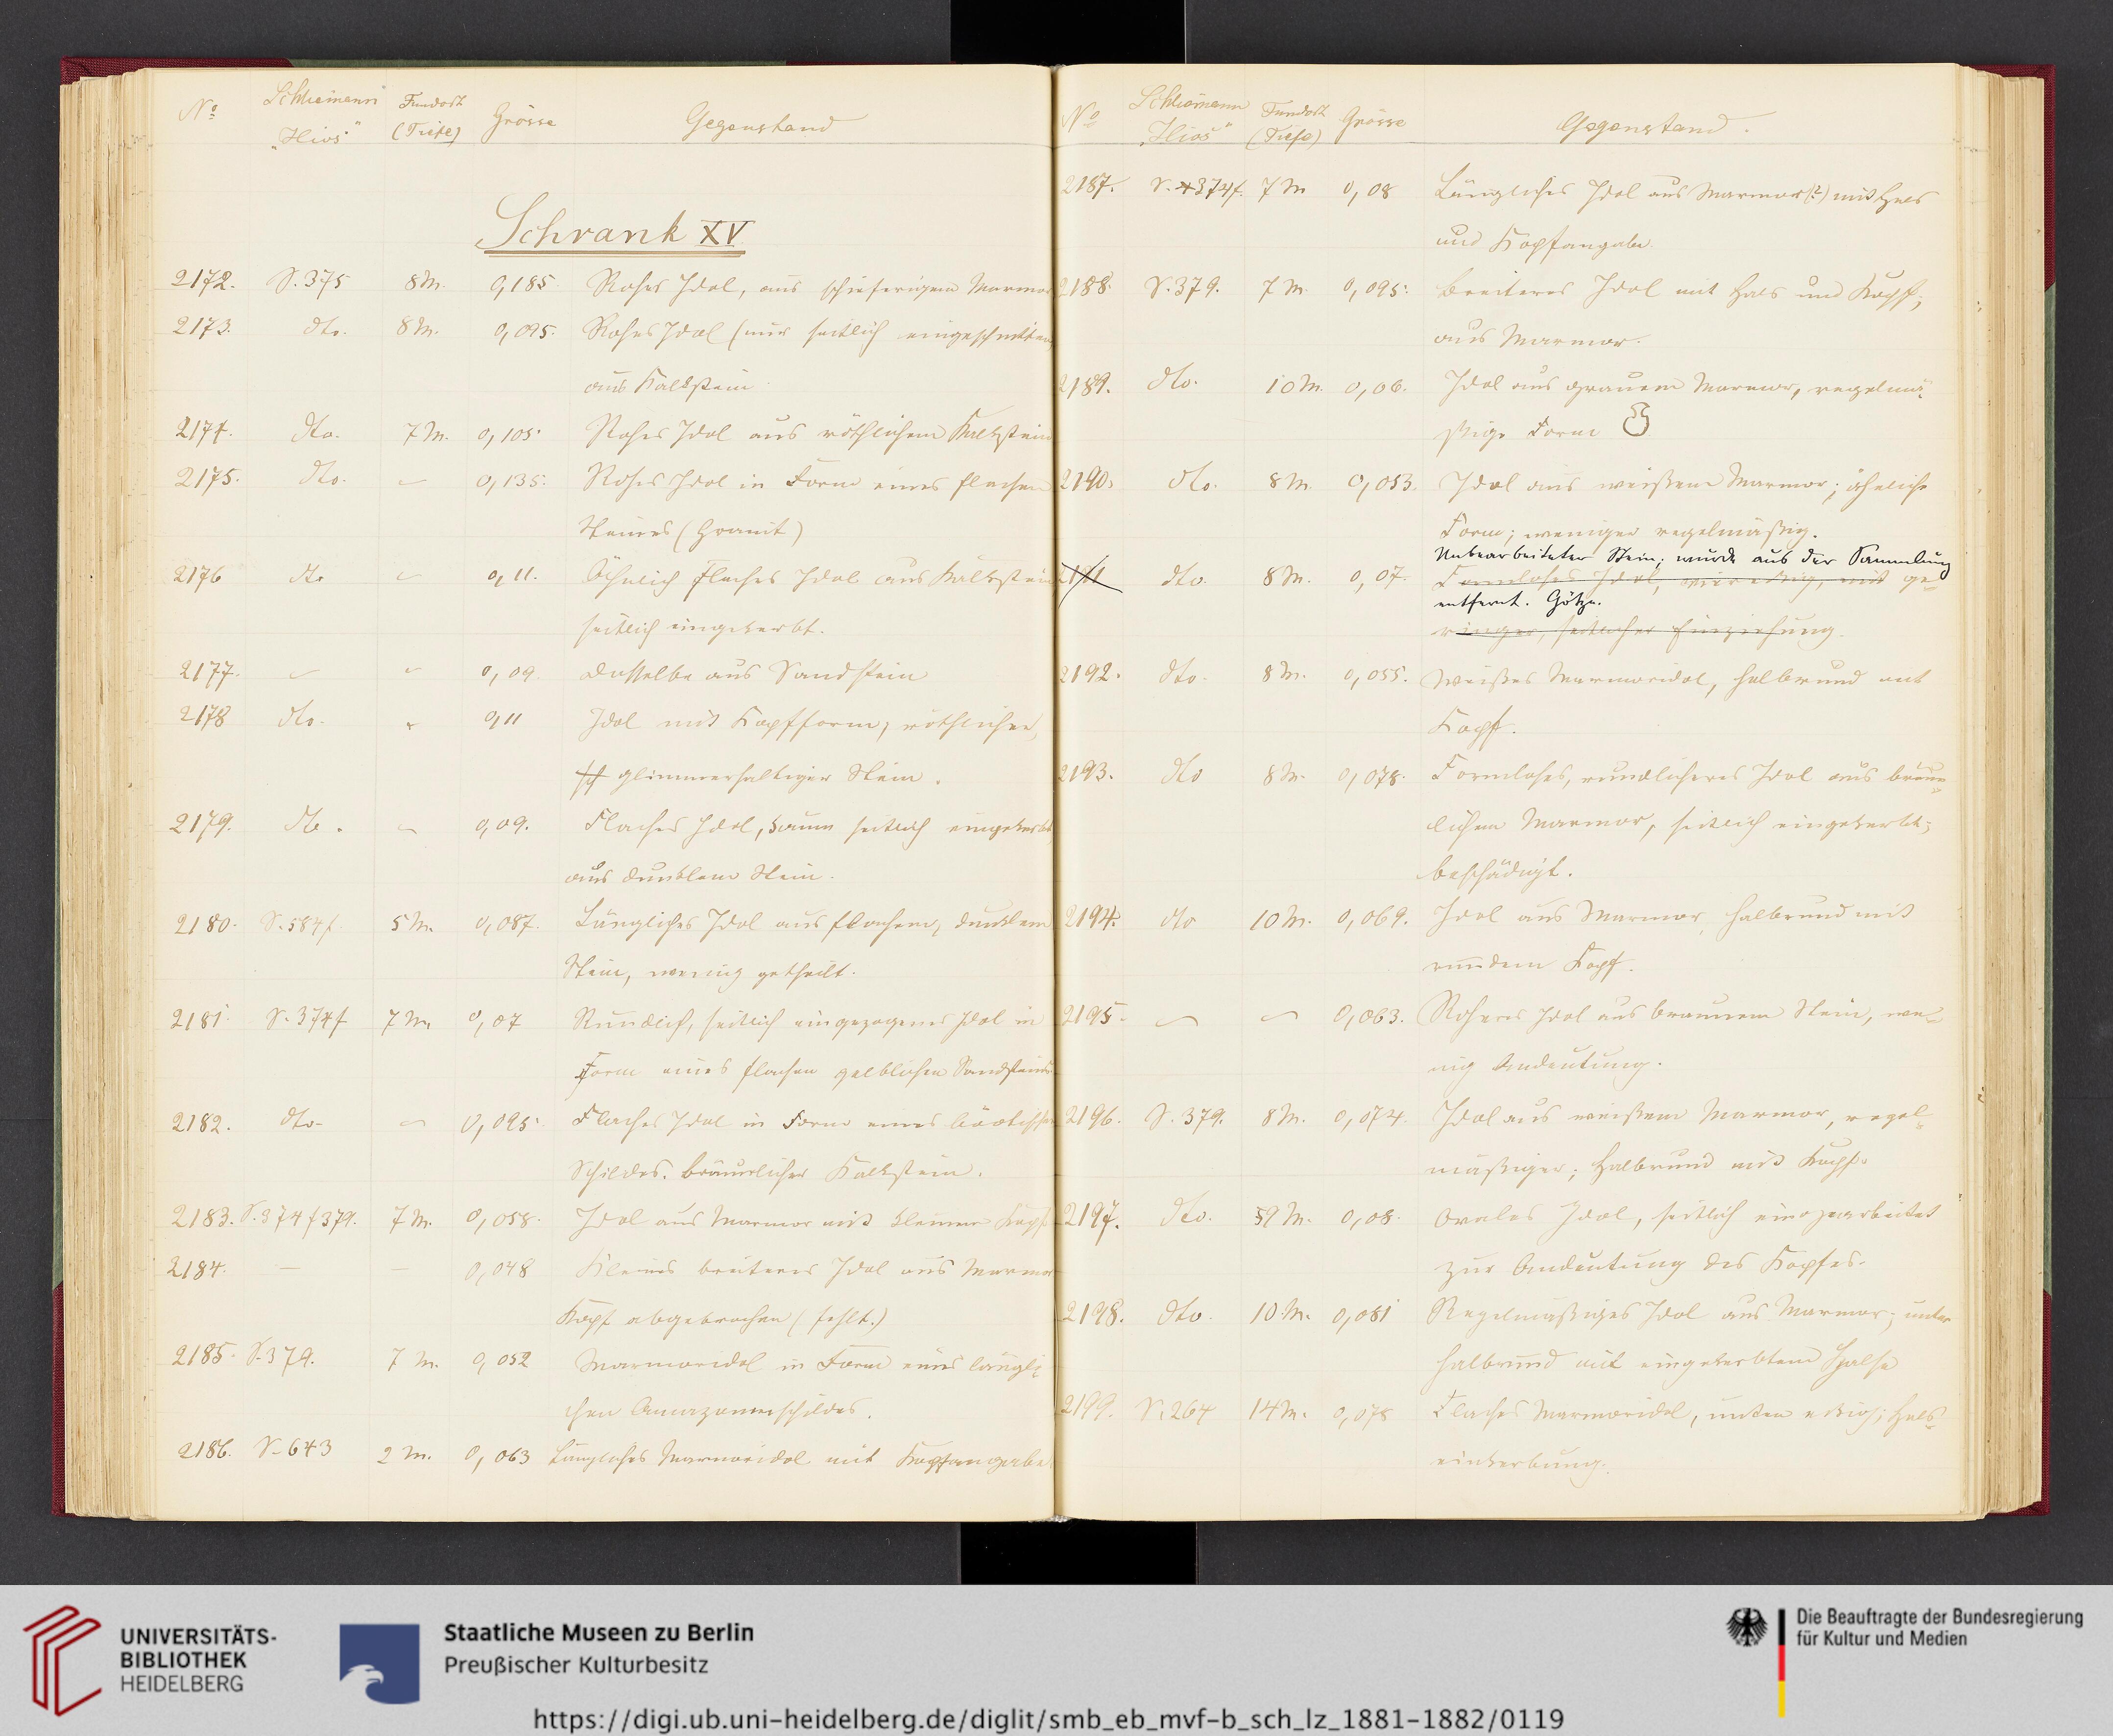 No Schliemann Fundort Grösse Gegenstand
„Ilios“ (Tiefe)
Schrank XV
2172. S. 375 8 M. 0,185 Rohes Idol, aus schieferigem Marmor
2173. dto. 8 M. 0,095. Rohes Idol (nur seitlich eingeschnitten)
aus Kalkstein
2174. dto. 7 M. 0,105. Rohes Idol aus röthlichem Kalkstein
2175. dto. — 0,135. Rohes Idol in Form eines flachen
Steines (Granit)
2176 dto — 0,11. Ähnlich flaches Idol aus Kalkstein
seitlich eingekerbt.
2177. — — 0,09. dasselbe aus Sandstein
2178 dto. — 0,11 Idol mit Kopfform, röthlicher,
glimmerhaltiger Stein.
2179. dto. — 0,09. Flaches Idol, kaum seitlich eingekerbt,
aus dunklem Stein.
2180. S. 584f. 5 M. 0,087. Längliches Idol aus flachem, dunklem
Stein, wenig getheilt.
2181. S. 374f 7 M. 0,07 Rundlich, seitlich eingezogenes Idol in
Form eines flachen gelblichen Sandsteins
2182. dto. — 0,095. Flaches Idol in Form eines böotischen
Schildes. Bräunlicher Kalkstein.
2183. S. 374f 379. 7 M. 0,058. Idol aus Marmor mit kleinem Kopf
2184. — — 0,048 Kleines breiteres Idol aus Marmor
Kopf abgebrochen (fehlt.)
2185. S. 379. 7 M. 0,052 Marmoridol in Form eines längli-
chen Amazonenschildes.
2186. S. 643 2 M. 0,063 Längliches Marmoridol mit Kopfangabe
No Schliemann Fundort Grösse Gegenstand.
„Ilios“ (Tiefe)
2187. S. 374f. 7 M 0,08 Längliches Idol aus Marmor(?) mit Hals
und Kopfangabe.
2188. S. 379. 7 M. 0,095. Breiteres Idol mit Hals und Kopf;
aus Marmor.
2189. dto. 10 M. 0,06. Idol aus grauem Marmor, regelmä-
ßige Form
2190. dto. 8 M. 0,053. Idol aus weißem Marmor; ähnliche
Form; weniger regelmäßig.
Unbearbeiteter Stein; wurde aus der Sammlung
2191 dto. 8 M. 0,07. Formloses Idol, viereckig, mit ge-
entfernt. Götze.
ringer, seitlicher Einziehung.
2192. dto. 8 M. 0,055. Weißes Marmoridol, halbrund mit
Kopf.
2193. dto 8 M. 0,078. Formloses, rundlicheres Idol aus bräun-
lichem Marmor, seitlich eingekerbt;
beschädigt.
2194. dto 10 M. 0,069. Idol aus Marmor, halbrund mit
rundem Kopf.
2195. — — 0,063. Roheres Idol aus braunem Stein, we-
nig Andeutung.
2196. S. 379. 8 M. 0,074. Idol aus weißem Marmor, regel-
mäßiger; halbrund mit Kopf.
2197. dto. 9 M. 0,08. Ovales Idol, seitlich eingearbeitet
zur Andeutung des Kopfes.
2198. dto. 10 M. 0,081 Regelmäßiges Idol aus Marmor; unten
halbrund mit eingekerbtem Halse
2199. S. 264 14 M. 0,078 Flaches Marmoridol, unten eckig; Hals-
einkerbung.
UNIVERSITÄTS-
BIBLIOTHEK
HEIDELBERG
Staatliche Museen zu Berlin
Preußischer Kulturbesitz
Die Beauftragte der Bundesregierung
für Kultur und Medien
https://digi.ub.uni-heidelberg.de/diglit/smb_eb_mvf-b_sch_lz_1881-1882/0119